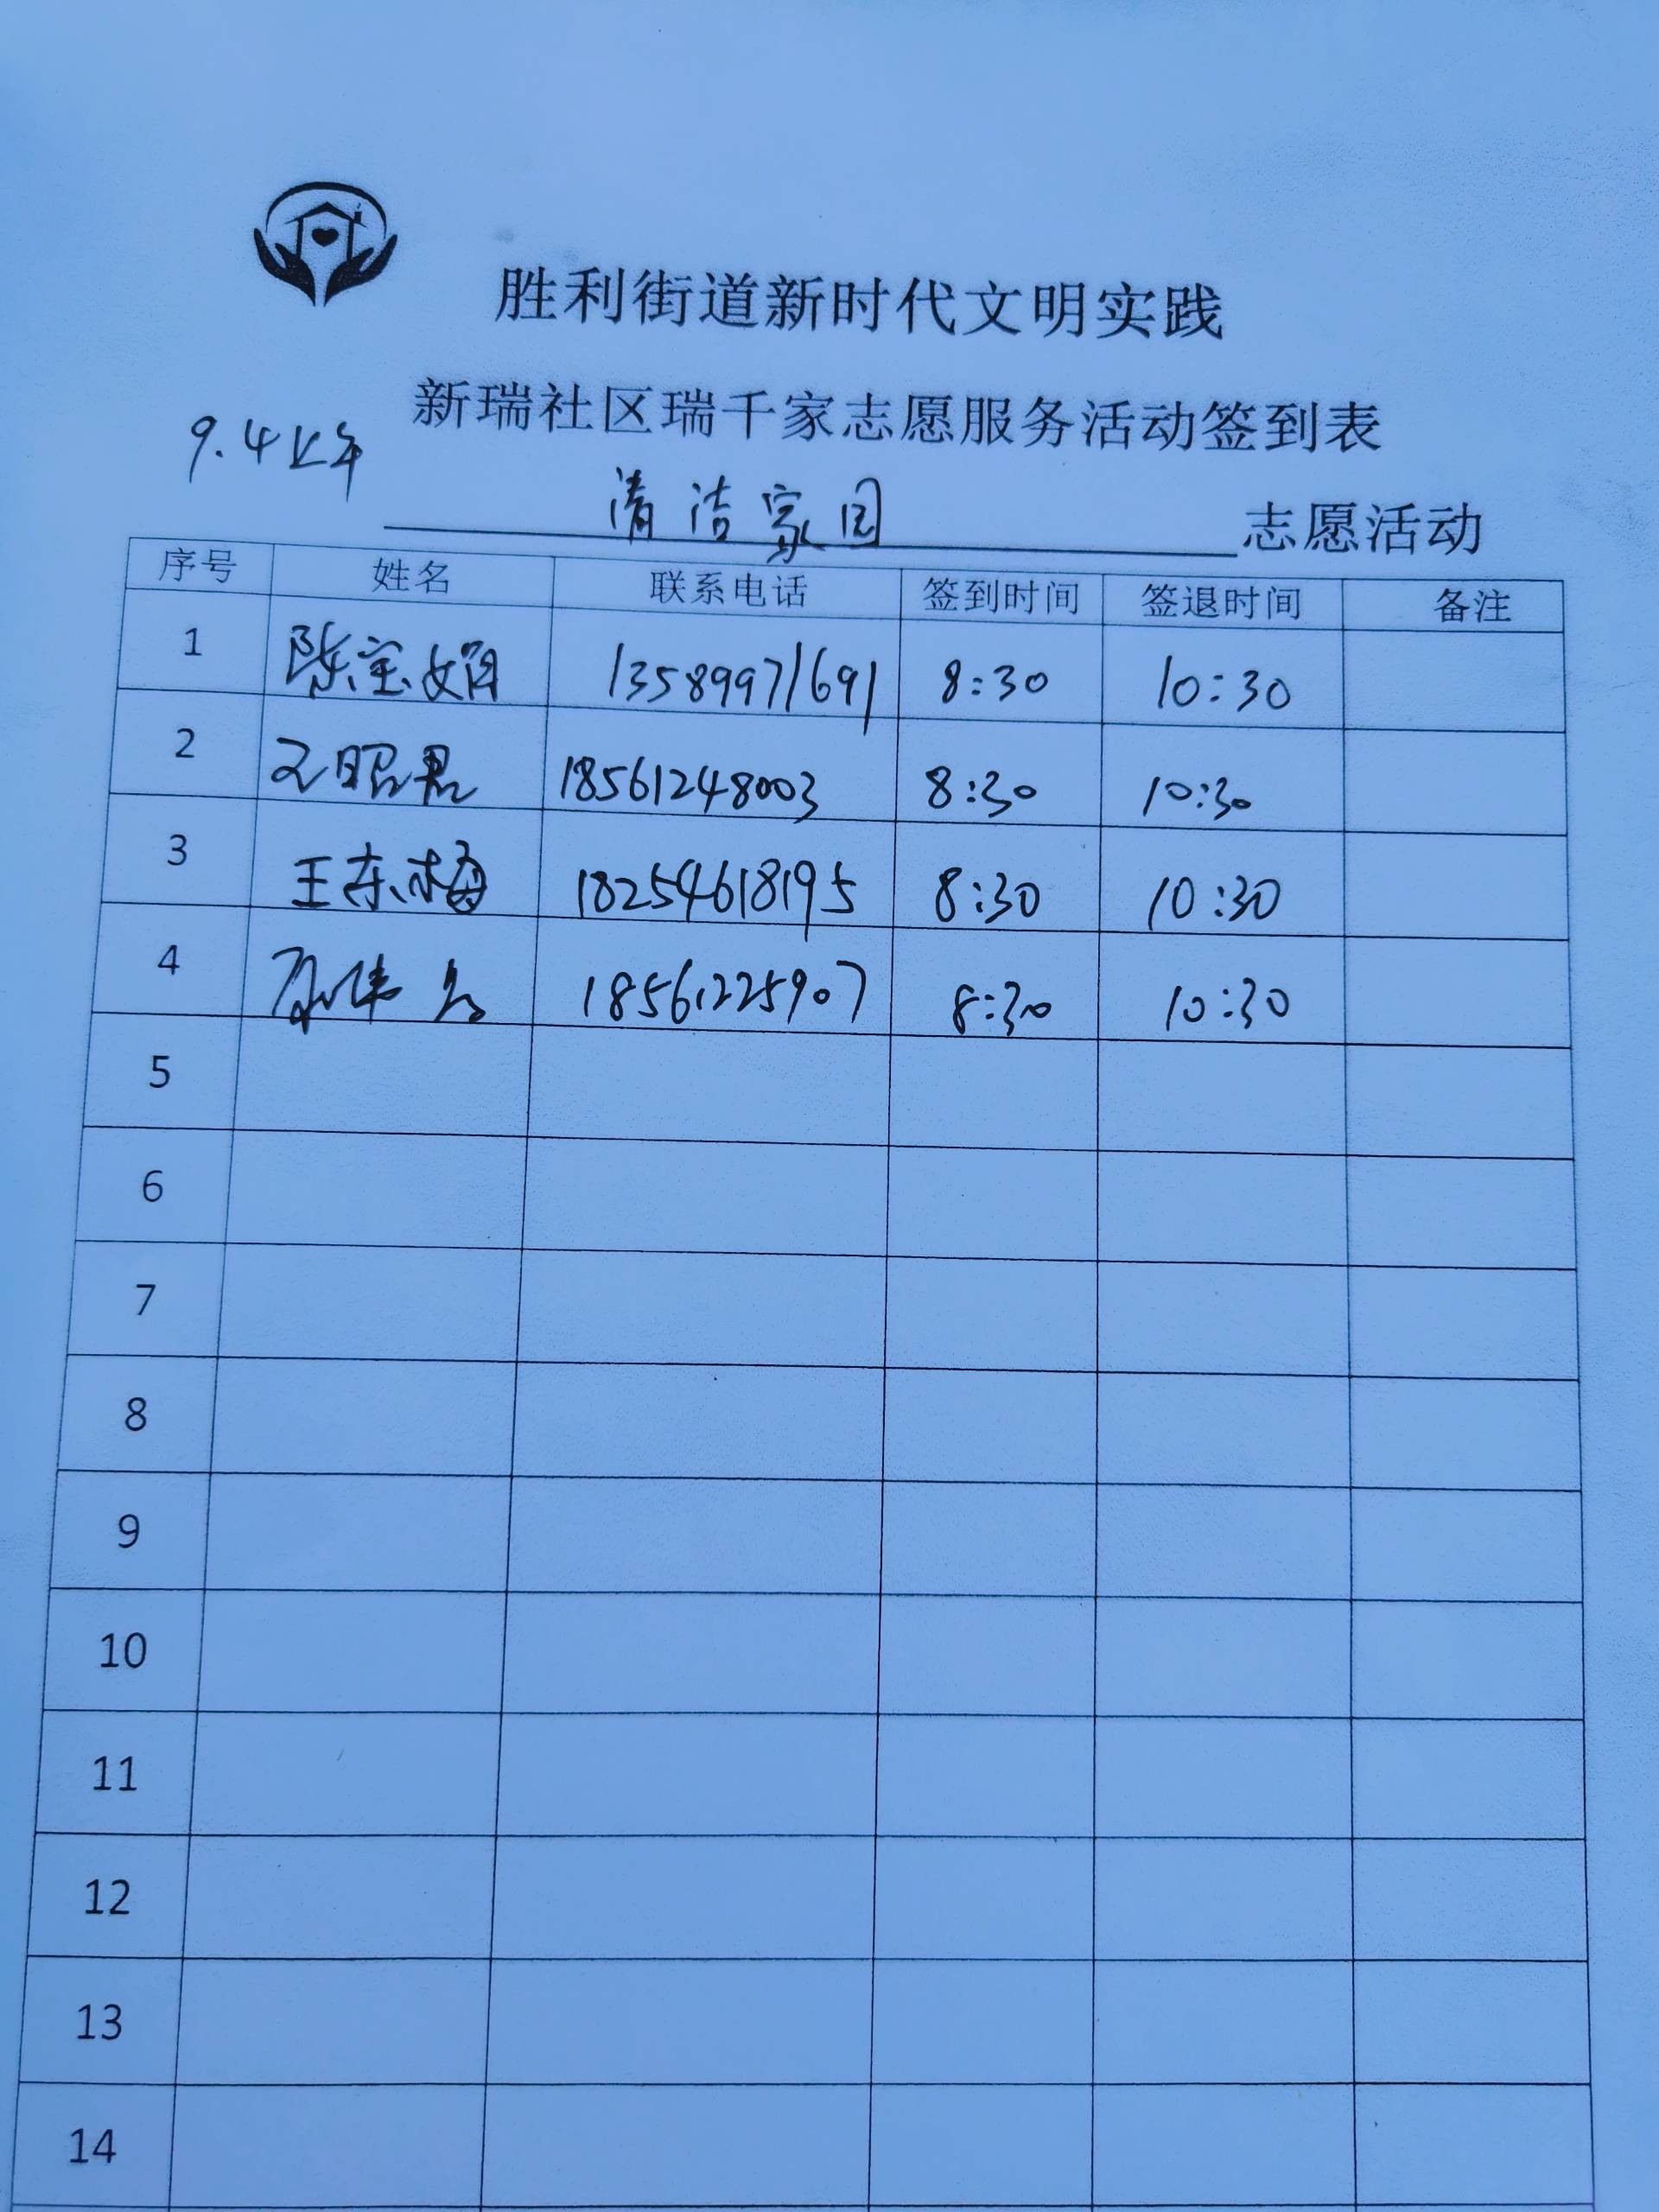 胜利街道新时代文明实践
新瑞社区瑞千家志愿服务活动签到表
9.4上午
清洁家园 志愿活动
序号 姓名 联系电话 签到时间 签退时间 备注
1 陈宝娟 13589971691 8:30 10:30
2 王昭君 18561248003 8:30 10:30
3 王东梅 18254618195 8:30 10:30
4 18561225907 8:30 10:30
5
6
7
8
9
10
11
12
13
14